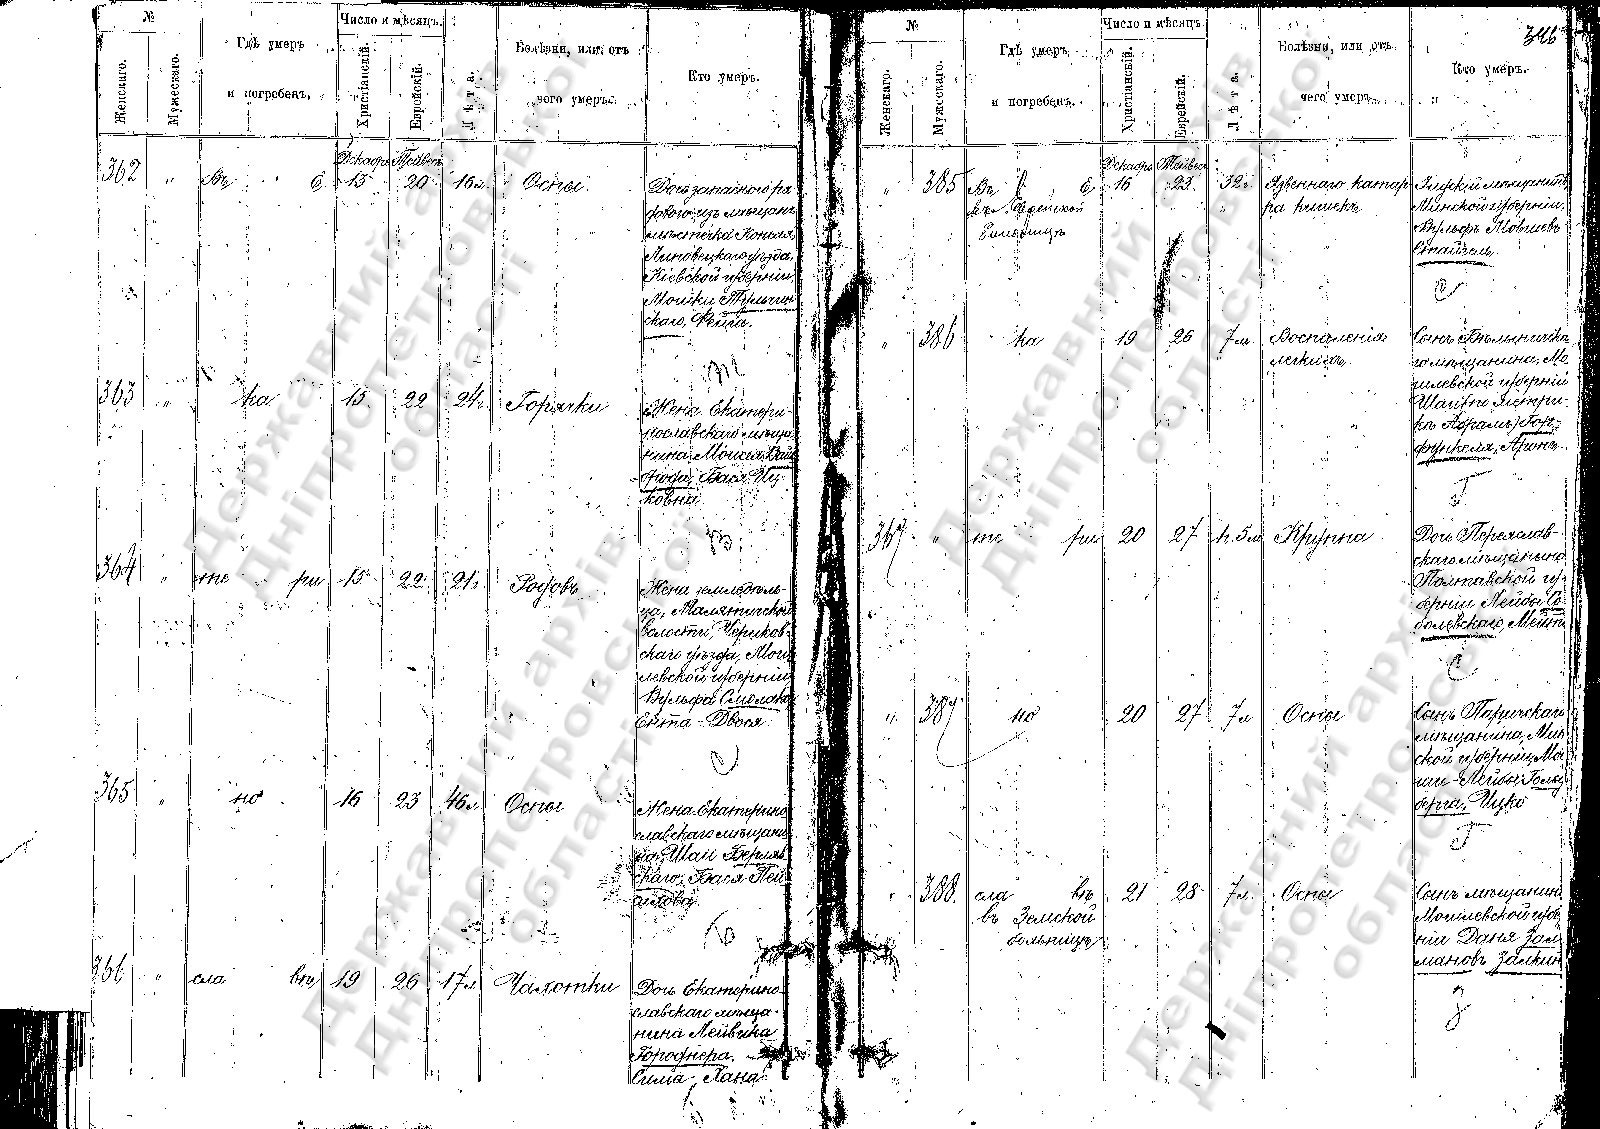 №
Женскаго.
Мужескаго.
Гдѣ умеръ
и погребенъ.
Число и мѣсяцъ.
Христіанскій.
Еврейскій.
Лѣта.
Болѣзни, или отъ
чего умеръ.
Кто умеръ.
362 " Въ Е
Декабрь 13
Тейвесъ 20
16 л. Оспы
Дочь запаснаго ря-
дового изъ мѣщанъ
мѣстечка
Липовецкаго уѣзда,
Кіевской губерніи,
Мошки Тульчин-
скаго, Фейга.
Т
363 " ка 15 22 24 г. Горячки
Жена Екатери-
нославскаго мѣща-
нина Моисея Вай-
Бася Иц-
ковна
В
364 " те ри 15 22 21 г. Родовъ
Жена земледѣль-
ца,
волости, Чериков-
скаго уѣзда, Моги-
левской губерніи,
Вульфа
Ента-Двося
С
365 " но 16 23 46 л. Оспы
Жена Екатерино-
славскаго мѣщани-
на, Шаи Берляв-
скаго, Бася Лей-
Б
366 " сла въ 19 26 17 л. Чахотки
Дочь Екатерино-
славскаго мѣща-
нина Лейвика
Городнера,
Сима-Хана
346
№
Женскаго.
Мужескаго.
Гдѣ умеръ
и погребенъ.
Число и мѣсяцъ.
Христіанскій.
Еврейскій.
Лѣта.
Болѣзни, или отъ
чего умеръ.
Кто умеръ.
" 385 Въ Е
въ Еврейской
больницѣ
Декабрь 16
Тейвесъ 23
32 г. Язвеннаго катар-
ра кишекъ
мѣщанинъ
Минской губерніи,
Вульфъ Мовшевъ
С
" 386 ка 19 26 7 м. Воспаленія
легкихъ
Сынъ
го мѣщанина, Мо-
гилевской губерніи
Абрамъ) Гор-
функеля, Аронъ
Г
367 " те ри 20 27 1½ м. Круппа
Дочь Переяслав-
скаго мѣщанина
Полтавской гу-
берніи Лейбы Со-
болевскаго,
С
" 387 но 20 27 7 л. Оспы
Сынъ Паричскаго
мѣщанина, Мин-
ской губерніи, Мо-
Лейбы Голд-
берга, Ицко
Г
" 388 сла въ 21 28 7 л. Оспы
въ Земской
больницѣ
Сынъ мѣщанина,
Могилевской губер-
ніи Даня Зал-
мановъ Залкинъ
З
Державний архів
Дніпропетровської
області